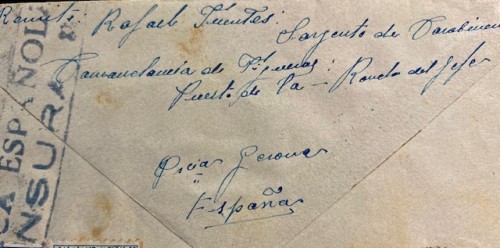 Remite: Rafael Fuentes: Sargento de Carabineros
Comandancia de Figueras:
Puesto de La – Rancho del Jefe
Pcia Gerona
España
CA ESPAÑOLA
NSURA